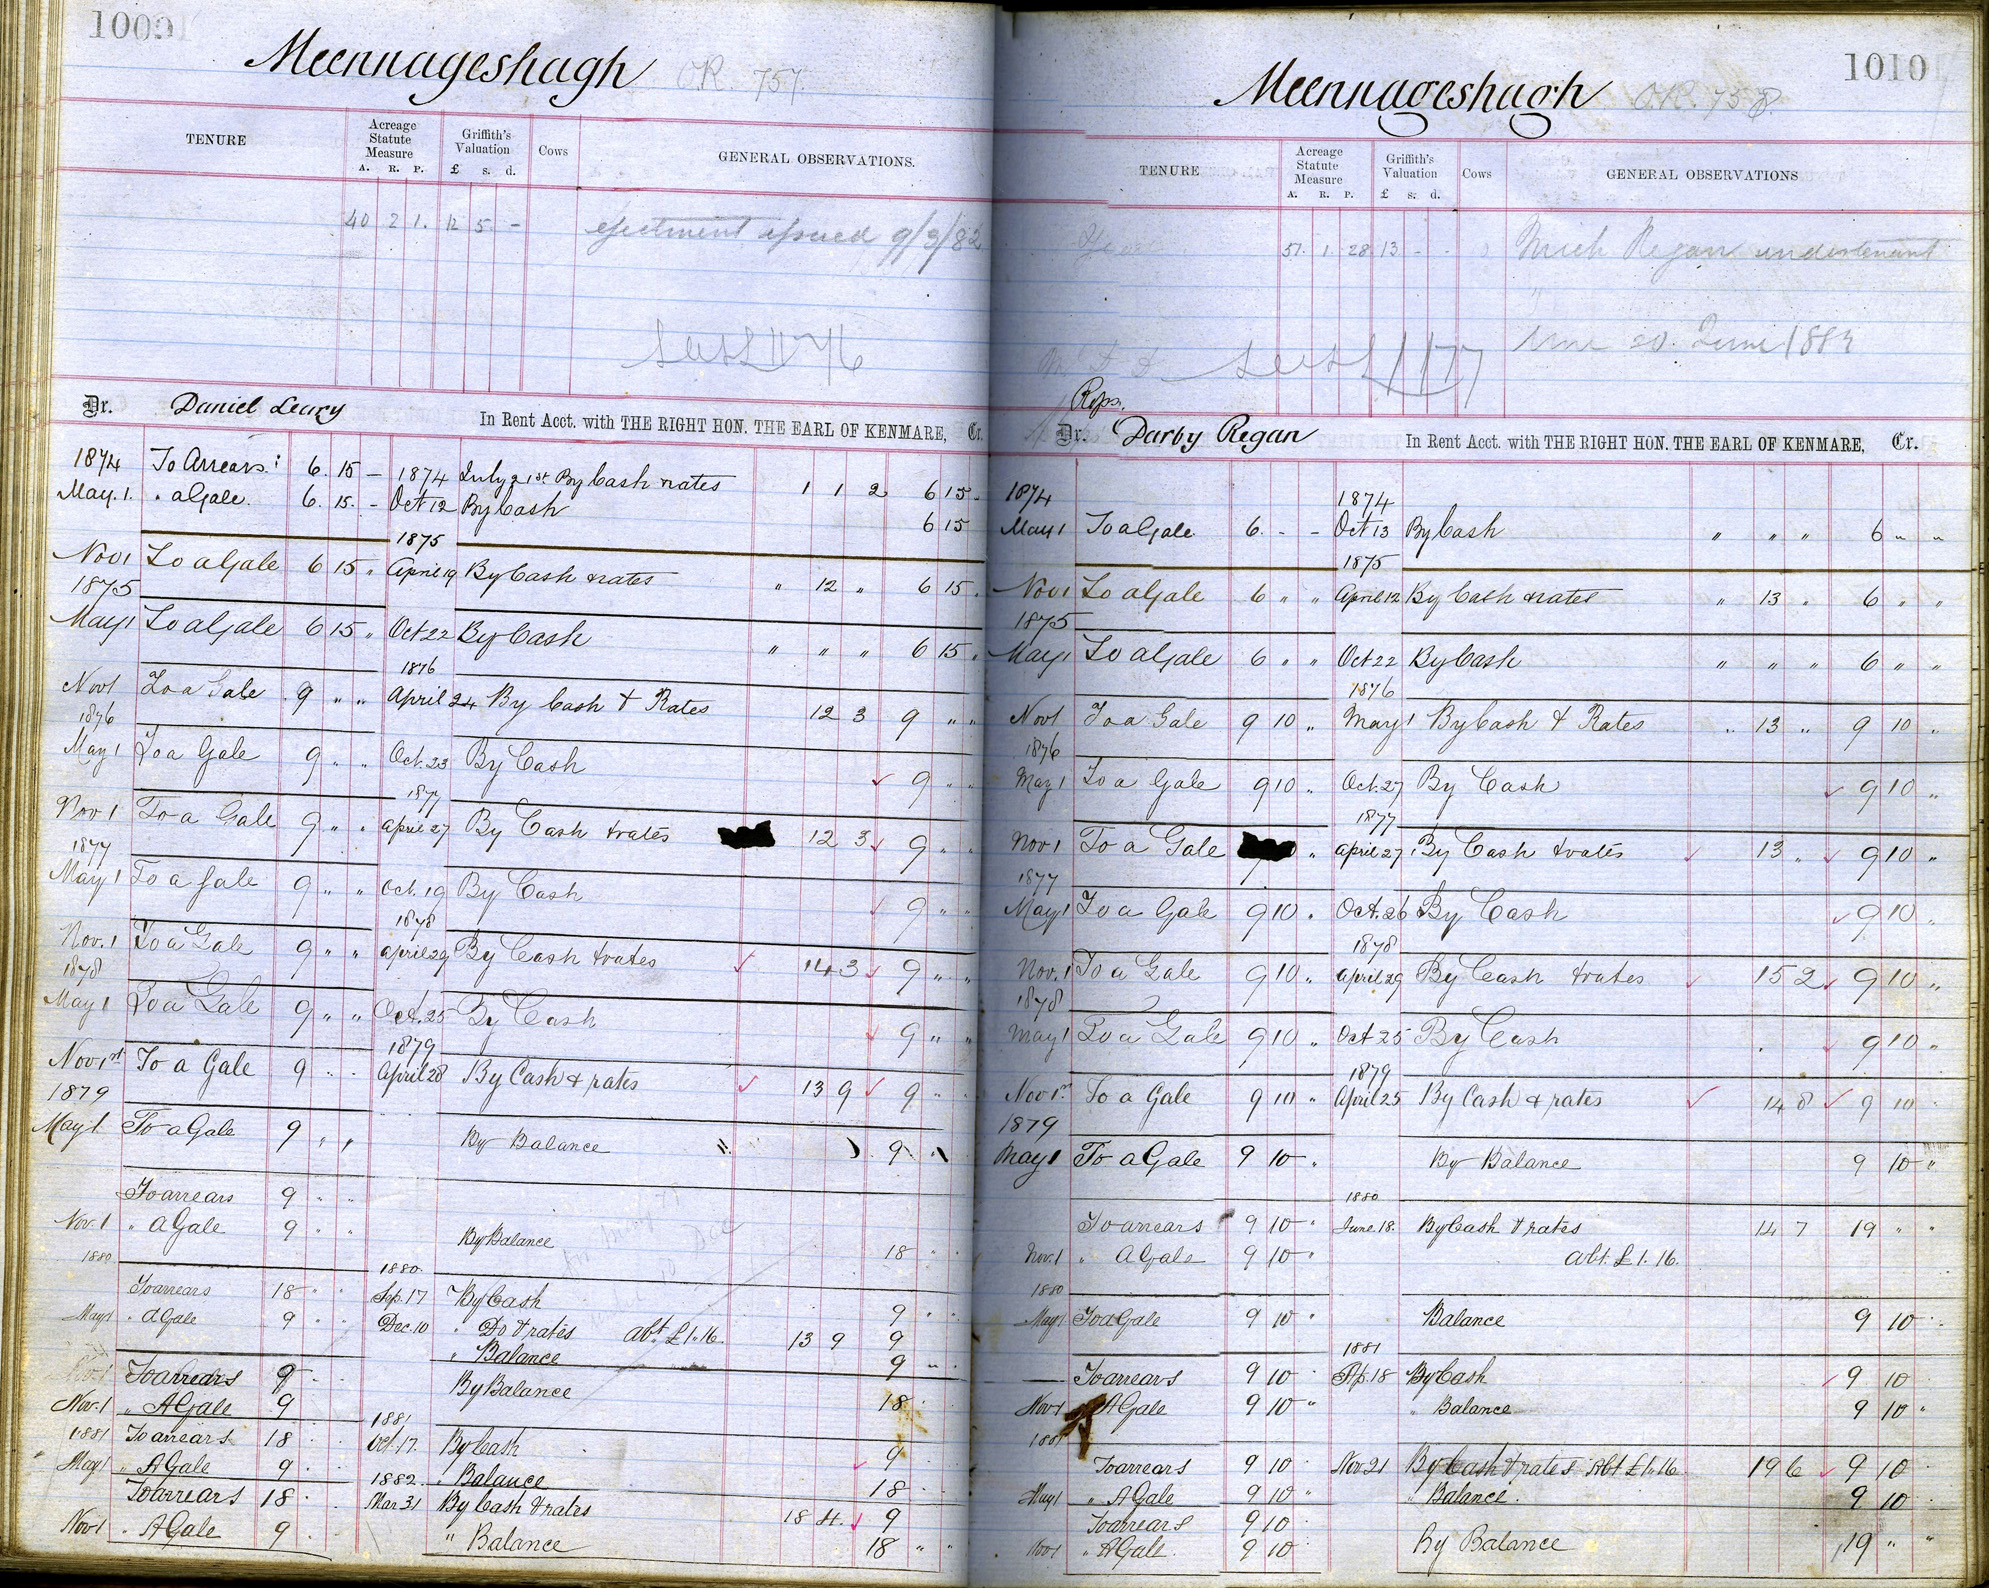 1009
Meennageshagh O.R. 757.
TENURE
Acreage Statute Measure
A. R. P.
Griffith's Valuation
£ s. d.
Cows
GENERAL OBSERVATIONS.
40 2 1. 12 5 - ejectment issued 9/3/82
Dr. Daniel Leary In Rent Acct. with THE RIGHT HON. THE EARL OF KENMARE, Cr.
1874 To Arrears: 6. 15 - 1874 July 21st By Cash rates 1 1 2 6 15 -
May. 1. " a Gale. 6. 15. - Oct 12 By Cash 6 15
1875
Nov 1 To a Gale 6 15 " April 19 By Cash & rates " 12 " 6 15 "
1875
May 1 To a Gale 6 15 " Oct 22 By Cash " " " 6 15 "
1876
Nov 1 To a Gale 9 " " April 24 By Cash & Rates 12 3 9 " "
1876
May 1 To a Gale 9 " " Oct. 23 By Cash 9 " "
1877
Nov 1 To a Gale 9 " " April 27 By Cash & rates 12 3 9 " "
1877
May 1 To a gale 9 " " Oct. 19 By Cash 9 " "
1878
Nov. 1 To a Gale 9 " " April 29 By Cash & rates 14 3 9 " "
1878
May 1 To a Gale 9 " " Oct. 25 By Cash 9 " "
1879
Nov 1st To a Gale 9 " " April 28 By Cash & rates 13 9 9 " "
1879
May 1 To a Gale 9 " " By Balance 9 "
To arrears 9 " "
Nov. 1 " A Gale 9 " " By Balance 18 "
1880
1880.
To arrears 18 " " Sep. 17 By Cash 9 "
May 1 " A Gale 9 " Dec. 10 " Do & rates abt. £1.16. 13 9 9
" Balance 9 "
To arrears 9 " By Balance 18 "
Nov. 1 " A Gale 9 "
1881
1881 To arrears 18 " Oct. 17. By Cash 9 "
May 1 " A Gale 9 " Balance 18 "
1882.
To arrears 18 " Mar 31 By Cash & rates 18 4. 9
Nov 1 " A Gale 9 " " Balance 18 " "
1010
Meennageshagh O.R. 758.
TENURE
Acreage Statute Measure
A. R. P.
Griffith's Valuation
£ s. d.
Cows
GENERAL OBSERVATIONS
51. 1. 28 13 - - Mich Regan undertenant
20. June 1884
Reps.
Dr. Darby Regan In Rent Acct. with THE RIGHT HON. THE EARL OF KENMARE, Cr.
1874 1874
May 1 To a Gale. 6. - - Oct 13 By Cash " " " 6 " "
1875
Nov 1 To a Gale 6 " " April 12 By Cash & rates " 13 " 6 " "
1875
May 1 To a Gale 6 " " Oct 22 By Cash " " " 6 " "
1876
Nov 1 To a Gale 9 10 " May 1 By Cash & Rates " 13 " 9 10 "
1876
May 1 To a Gale 9 10 " Oct. 27 By Cash 9 10 "
1877
Nov 1 To a Gale " April 27 By Cash & rates 13 " 9 10 "
1877
May 1 To a Gale 9 10 " Oct. 26 By Cash 9 10 "
1878
Nov. 1 To a Gale 9 10 " April 29 By Cash & rates 15 2 9 10 "
1878
May 1 To a Gale 9 10 " Oct 25 By Cash 9 10 "
1879
Nov 1st To a Gale 9 10 " April 25 By Cash & rates 14 8 9 10 "
1879
May 1 To a Gale 9 10 " By Balance 9 10 "
1880
To arrears 9 10 " June. 18. By Cash & rates 14 7 19 " "
Nov. 1 " A Gale 9 10 " abt. £1.16.
1880
May 1 To a Gale 9 10 " Balance 9 10 "
1881
To arrears 9 10 " Ap. 18 By Cash 9 10 "
Nov 1 " A Gale 9 10 " " Balance 9 10 "
1881
To arrears 9 10 " Nov 21 By Cash & rates Abt £1.16. 19 6 9 10 "
May 1 " A Gale 9 10 " " Balance. 9 10 "
To arrears 9 10 "
Nov 1 " A Gale 9 10 " By Balance 19 " "